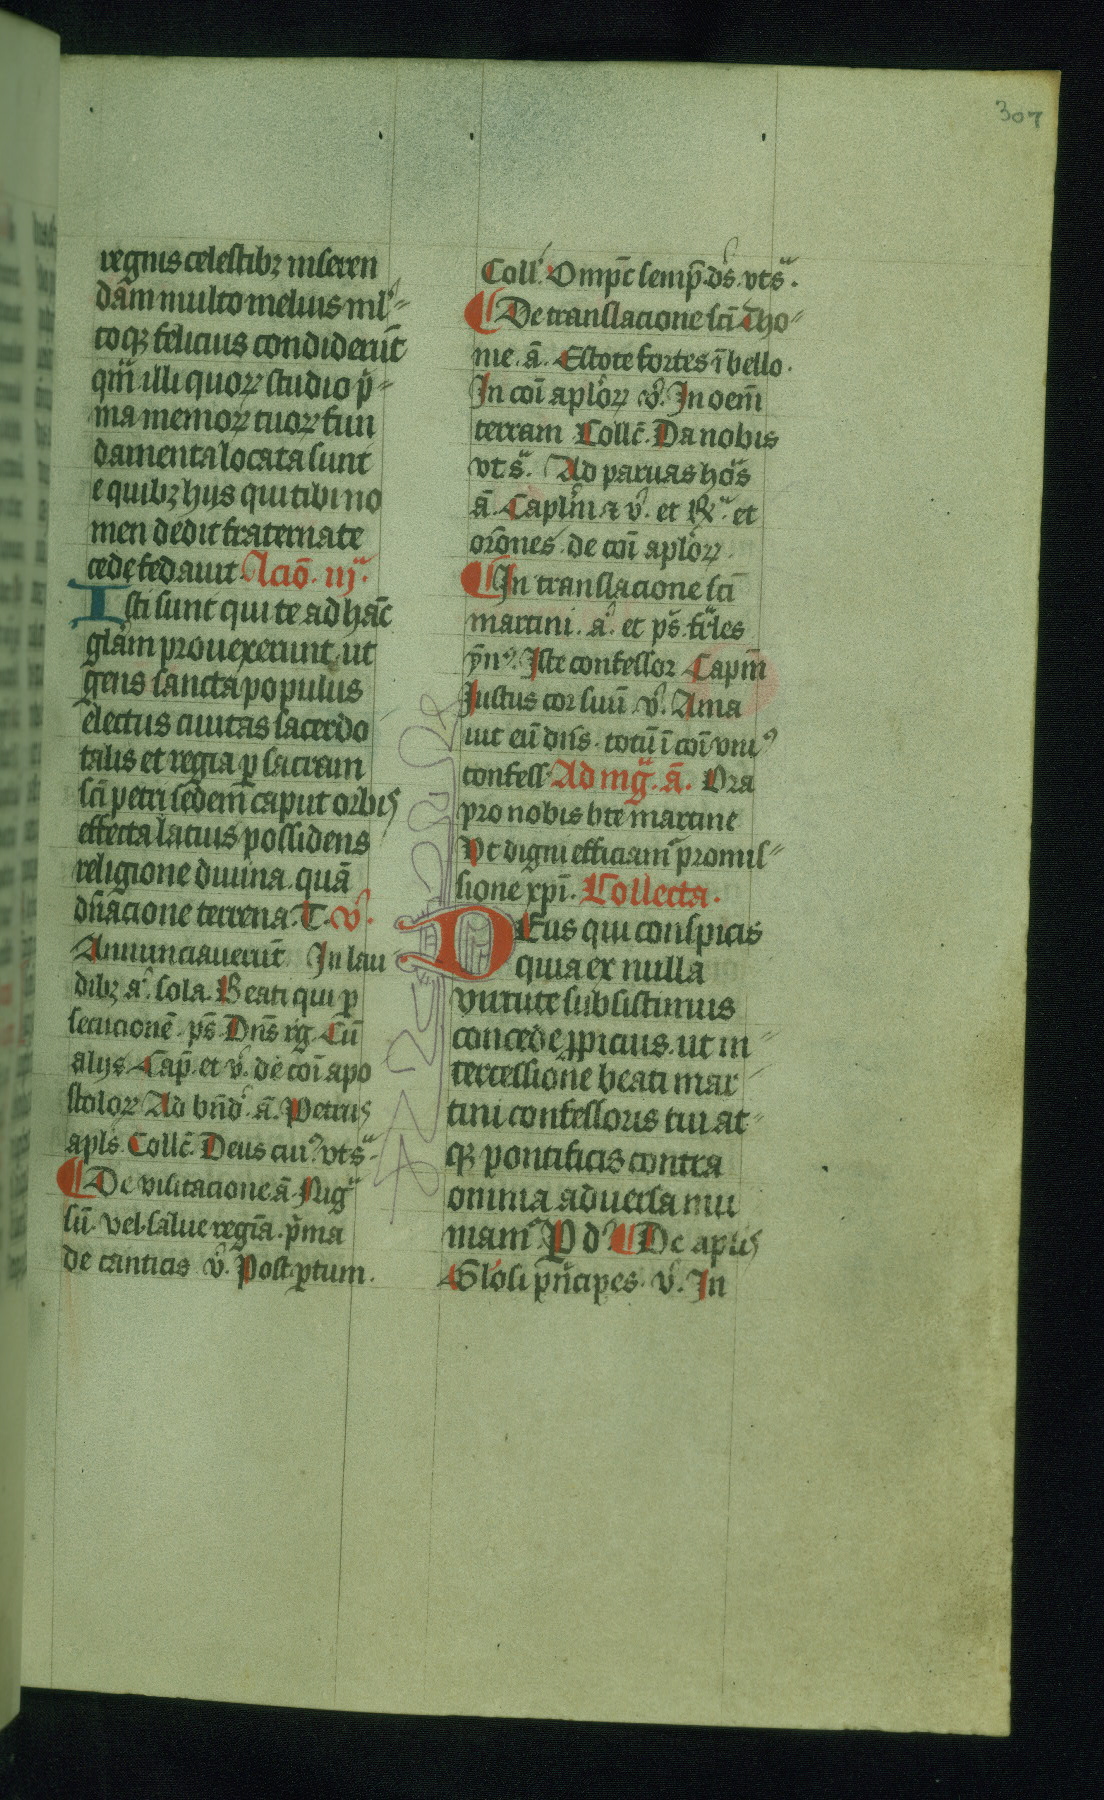 307
regnis celestibꝫ inseren
dam multo melius ml'=
toqꝫ felicius condiderūt
qm̄ illi quoꝝ studio p̄=
ma memoꝝ tuoꝝ fun
damenta locata sunt
e quibꝫ hijs qui tibi no
men dedit fraterna te
cede fedauit. Lcio. iijᵃ.
Isti sunt qui te ad hāc
gl̄am prouexerunt. ut
gens sancta populus
electus ciuitas sacerdo
talis et regia ꝑ sacram
sc̄i petri sedem̄ caput orbis
effecta latius possidens
religione diuina. quā
dn̄acione terrena. T. v̊.
Annunciauerūt In lau
dibꝫ aͣ. sola. Beati qui ꝑ
secucionē. ps̄. Dn̄s rg. Cū
alijs. Cap̄. et v̊. de coī apo
stoloꝝ Ad bn̄d'. ā. Petrus
apls. Collc̄. Deus cui⁹ vt sͣ.
¶ De visitacione. ā. Aug
sū. vel. salue regīa. p̄ma
de canticis v̊. Post ꝑtum.
Coll'. Omp̄c semp̄. ds̄. vt sͣ.
¶ De translacione sc̄i Tho=
me. ā. Estote fortes ī bello.
In coī aploꝝ v̊. In oem̄
terram Collc̄. Da nobis
vt sͣ. Ad paruas hos̄
ā. Caplm̄ ⁊ v̊. et ℟ͣ. et
orōnes. de coī aploꝝ.
¶ In translacione sc̄i
martini. aͣ. et ps̄. fr̄les
ẏn⁹. Iste confessor Capm̄
Iustus cor suū v̊. Ama
uit eū dn̄s. totū ī coī vni⁹
confess. Ad mgͣ. ā. Ora
pro nobis bt̄e martine
Vt digni efficiam' promis=
sione xp̄i. Collecta.
DEus qui conspicis
quia ex nulla
virtute subsistimus
concede ꝓpicius. ut in
tercessione beati mar
tini confessoris tui at
qꝫ pontificis contra
omnia aduersa mu
niam' P d' ¶ De aplis
Gl'osi pn̄cipes. v̊. In